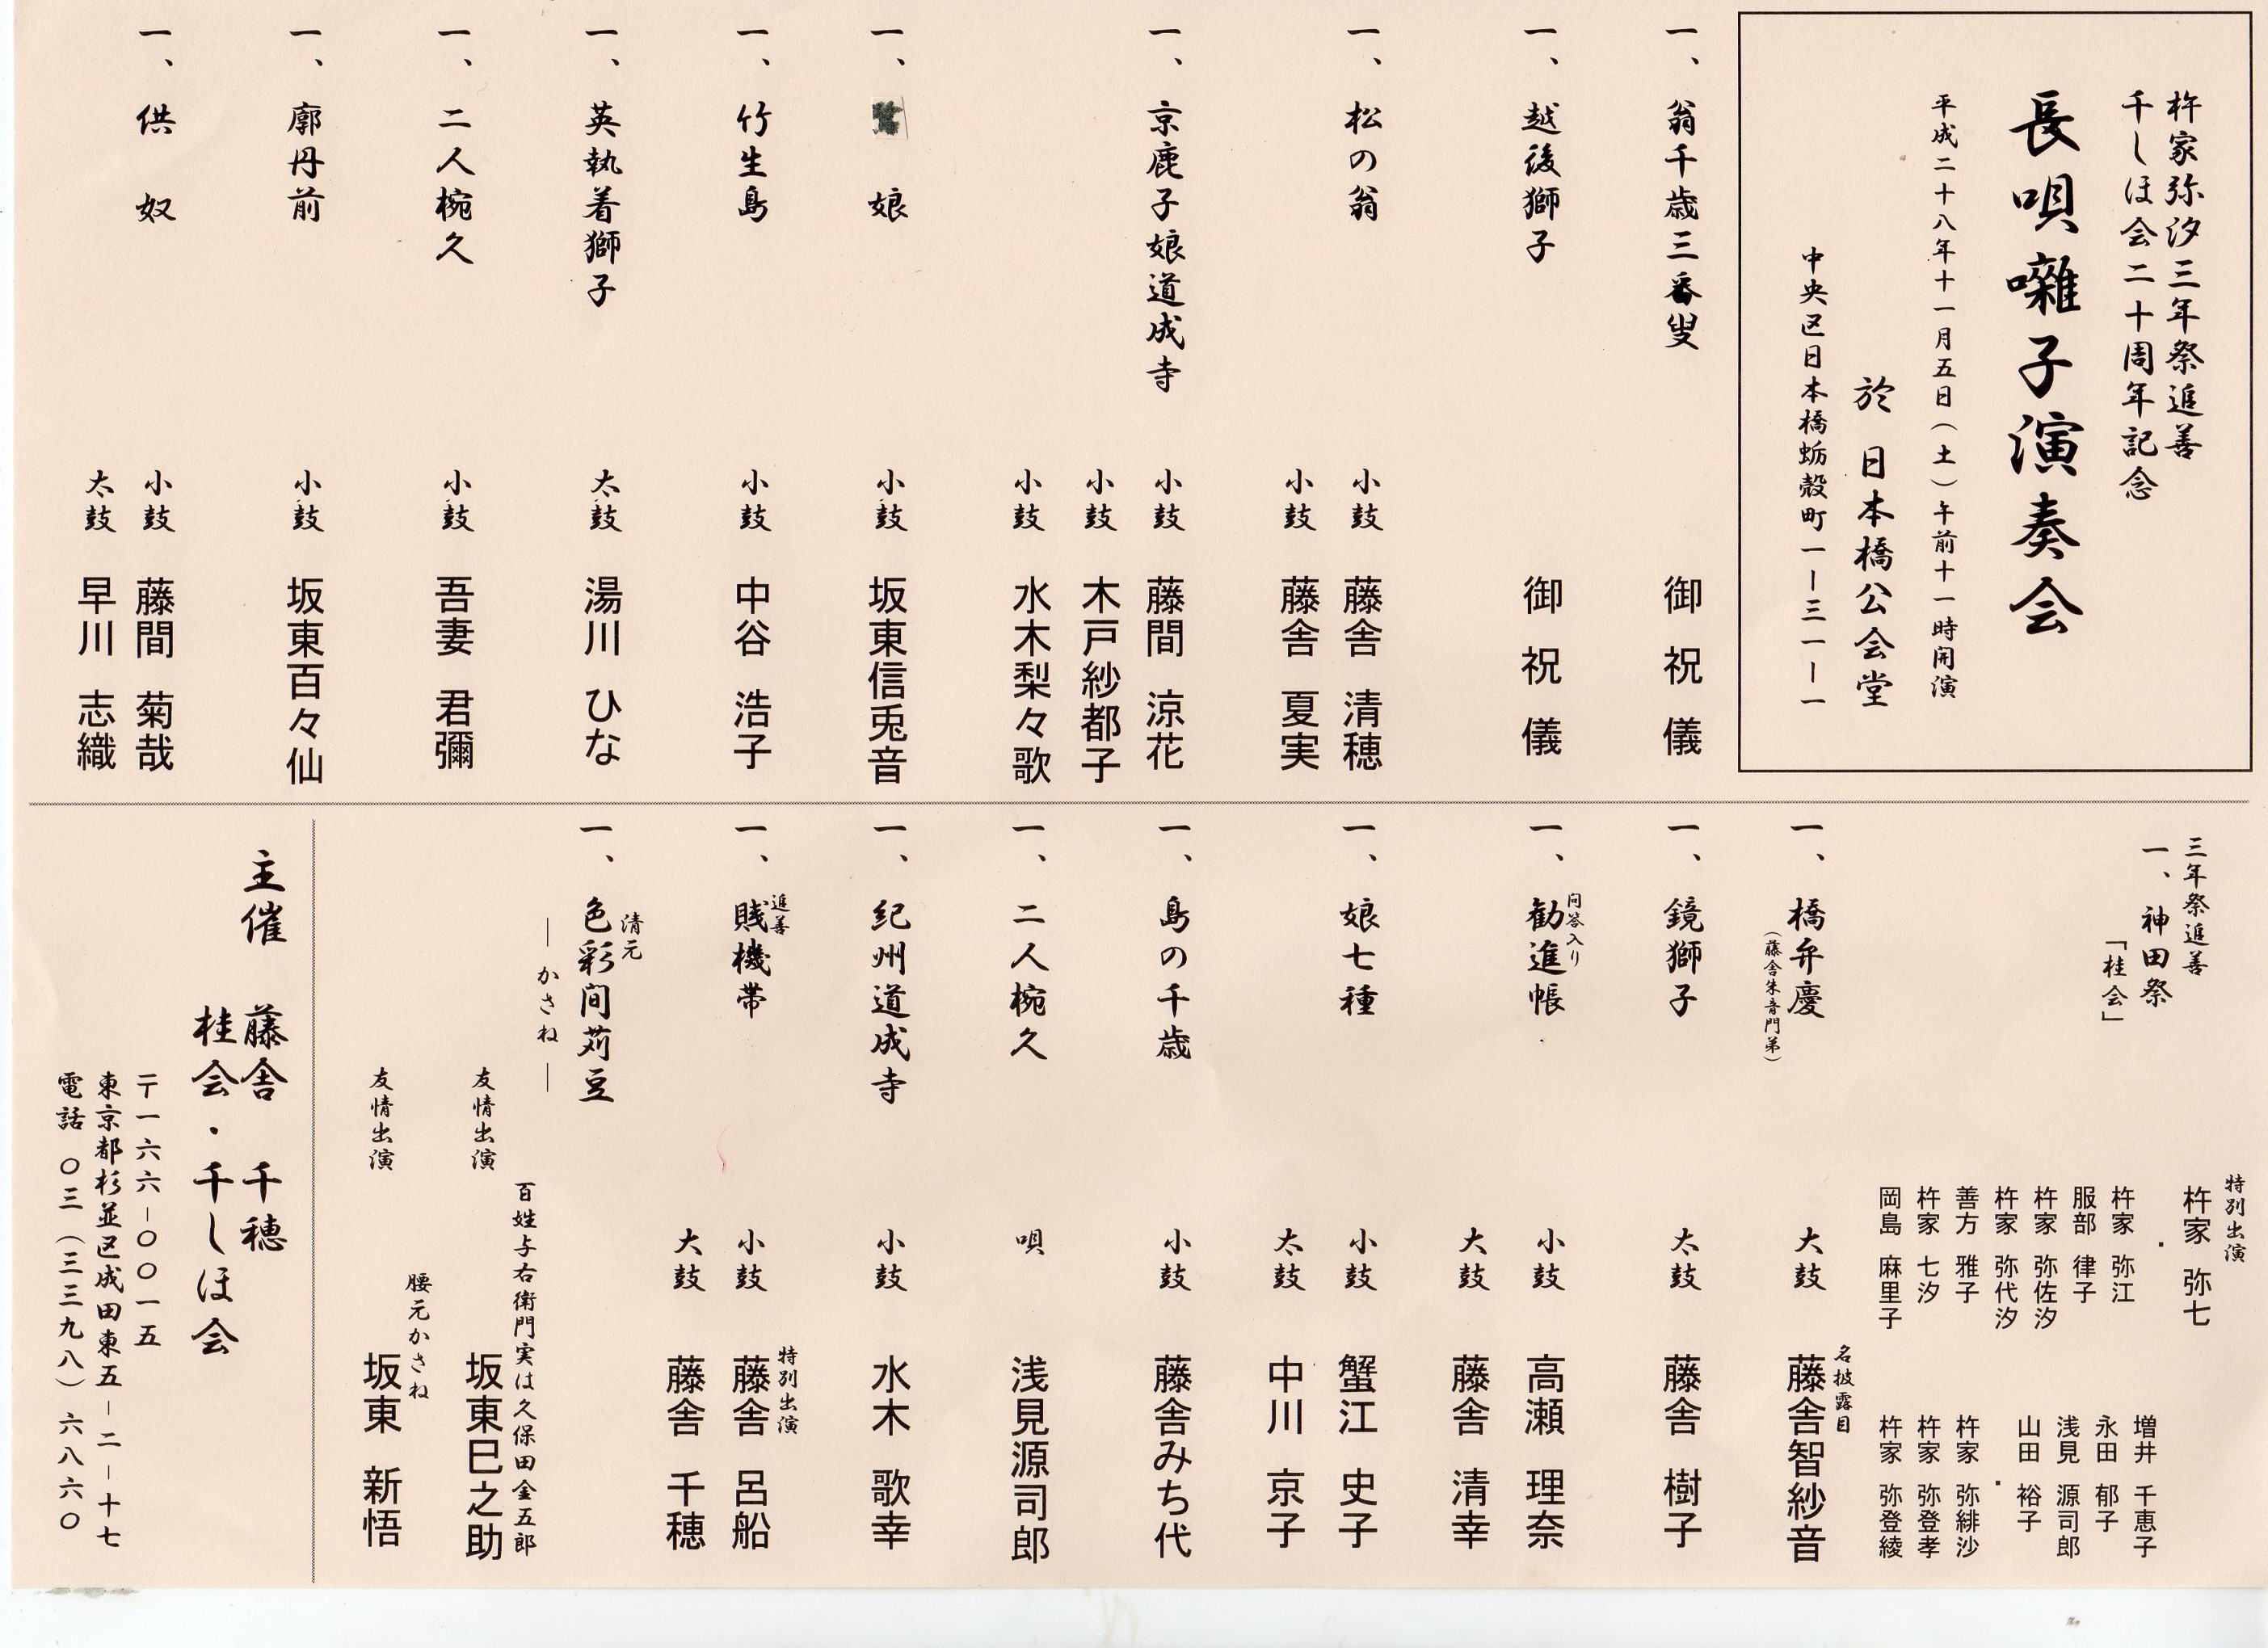 杵家弥汐三年祭追善
千しほ会二十周年記念
長唄囃子演奏会
平成二十八年十一月五日（土）午前十一時開演
於 日本橋公会堂
中央区日本橋蛎殻町一ー三一ー一
一、翁千歳三番叟 御祝儀
一、越後獅子 御祝儀
一、松の翁 小鼓 藤舎 清穂
小鼓 藤舎 夏実
一、京鹿子娘道成寺 小鼓 藤間 涼花
小鼓 木戸紗都子
小鼓 水木梨々歌
一、 娘 小鼓 坂東信兎音
一、竹生島 小鼓 中谷 浩子
一、英執着獅子 太鼓 湯川 ひな
一、二人椀久 小鼓 吾妻 君彌
一、廓丹前 小鼓 坂東百々仙
一、供奴 小鼓 藤間 菊哉
太鼓 早川 志織
三年祭追善
一、神田祭
「桂会」
特別出演
杵家 弥七
・
杵家 弥江
服部 律子
杵家 弥佐汐
杵家 弥代汐
善方 雅子
杵家 七汐
岡島 麻里子
増井 千恵子
永田 郁子
浅見 源司郎
山田 裕子
・
杵家 弥緋沙
杵家 弥登孝
杵家 弥登綾
名披露目
一、橋弁慶 大鼓 藤舎智紗音
（藤舎朱音門弟）
一、鏡獅子 太鼓 藤舎 樹子
問答入り
一、勧進帳 小鼓 高瀬 理奈
大鼓 藤舎 清幸
一、娘七種 小鼓 蟹江 史子
太鼓 中川 京子
一、島の千歳 小鼓 藤舎みち代
一、二人椀久 唄 浅見源司郎
一、紀州道成寺 小鼓 水木 歌幸
追善
特別出演
一、賎機帯 小鼓 藤舎 呂船
大鼓 藤舎 千穂
清元
一、色彩間苅豆
―かさね―
百姓与右衛門実は久保田金五郎
友情出演 坂東巳之助
腰元かさね
友情出演 坂東 新悟
主催 藤舎 千穂
桂会・千しほ会
〒一六六-〇〇一五
東京都杉並区成田東五-二-十七
電話 〇三（三三九八）六八六〇